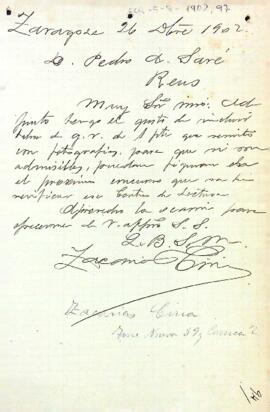 1902, 97
Zaragoza 26 Dbre 1902.
D. Pedro A. Savé
Reus
Muy Sr. mio: Ad-
junto tengo el gusto de incluir
de g. v. de 1 pta que remito
con fotografias, para que si son
admisibles, puedan figurar en
el proximo concurso que va á
verificar ese Centro de Lectura
Aprovecho la ocasion para
ofrecerme de V. affmo S. S.
Q. B. S. M.
Zacarias Ciria
Zacarias Ciria